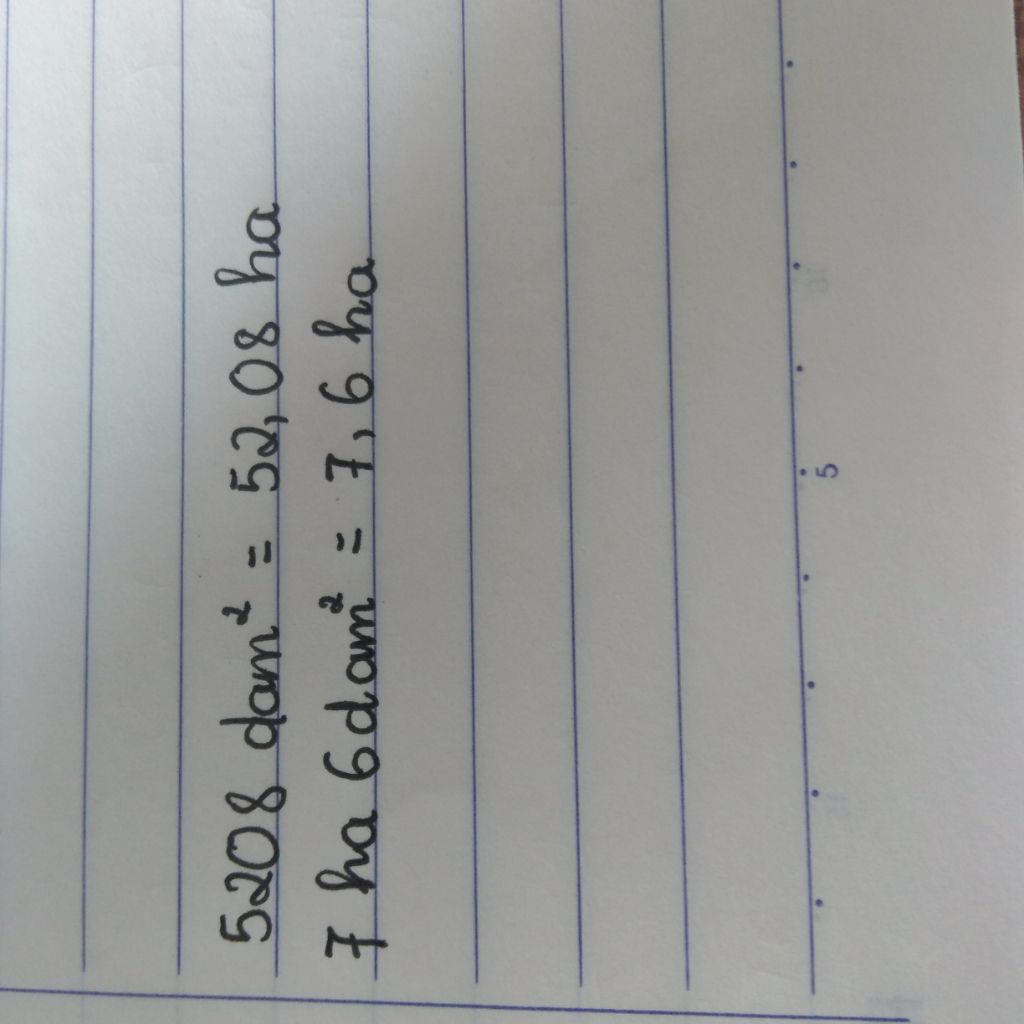 5208 dam² = 52,08 ha
7 ha 6dam² = 7,6 ha
5